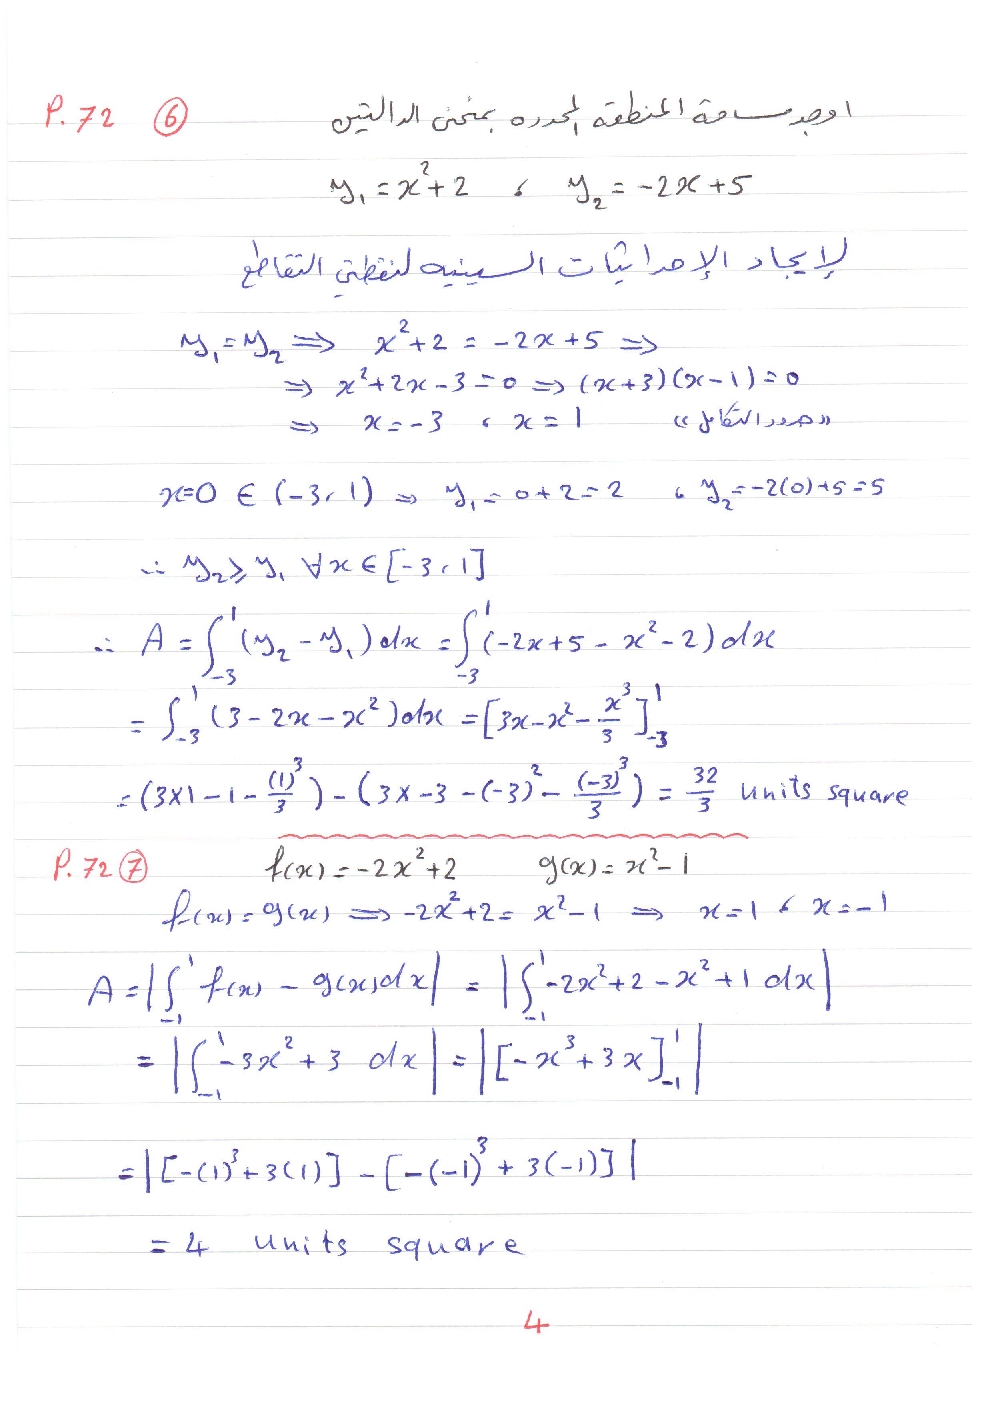 P. 72 ⑥ اوجد مساحة المنطقة المحدده بمنحنى الدالتين
y₁ = x² + 2 ، y₂ = -2x + 5
لإيجاد الإحداثيات السينيه لنقطتي التقاطع
y₁ = y₂ ⇒ x² + 2 = -2x + 5 ⇒
⇒ x² + 2x - 3 = 0 ⇒ (x+3)(x-1) = 0
⇒ x = -3 ، x = 1 «حدود التكامل»
x=0 ∈ (-3, 1) ⇒ y₁ = 0 + 2 = 2 ، y₂ = -2(0)+5 = 5
∴ y₂ ≥ y₁ ∀x ∈ [-3, 1]
∴ A = ∫₋₃¹ (y₂ - y₁) dx = ∫₋₃¹ (-2x + 5 - x² - 2) dx
= ∫₋₃¹ (3 - 2x - x²) dx = [3x - x² - x³/3]₋₃¹
= (3×1 - 1 - (1)³/3) - (3×-3 - (-3)² - (-3)³/3) = 32/3 units square
P. 72 ⑦ f(x) = -2x² + 2 g(x) = x² - 1
f(x) = g(x) ⇒ -2x² + 2 = x² - 1 ⇒ x = 1 ، x = -1
A = |∫₋₁¹ f(x) - g(x) dx| = |∫₋₁¹ -2x² + 2 - x² + 1 dx|
= |∫₋₁¹ -3x² + 3 dx| = |[-x³ + 3x]₋₁¹|
= |[-(1)³ + 3(1)] - [-(-1)³ + 3(-1)]|
= 4 units square
4